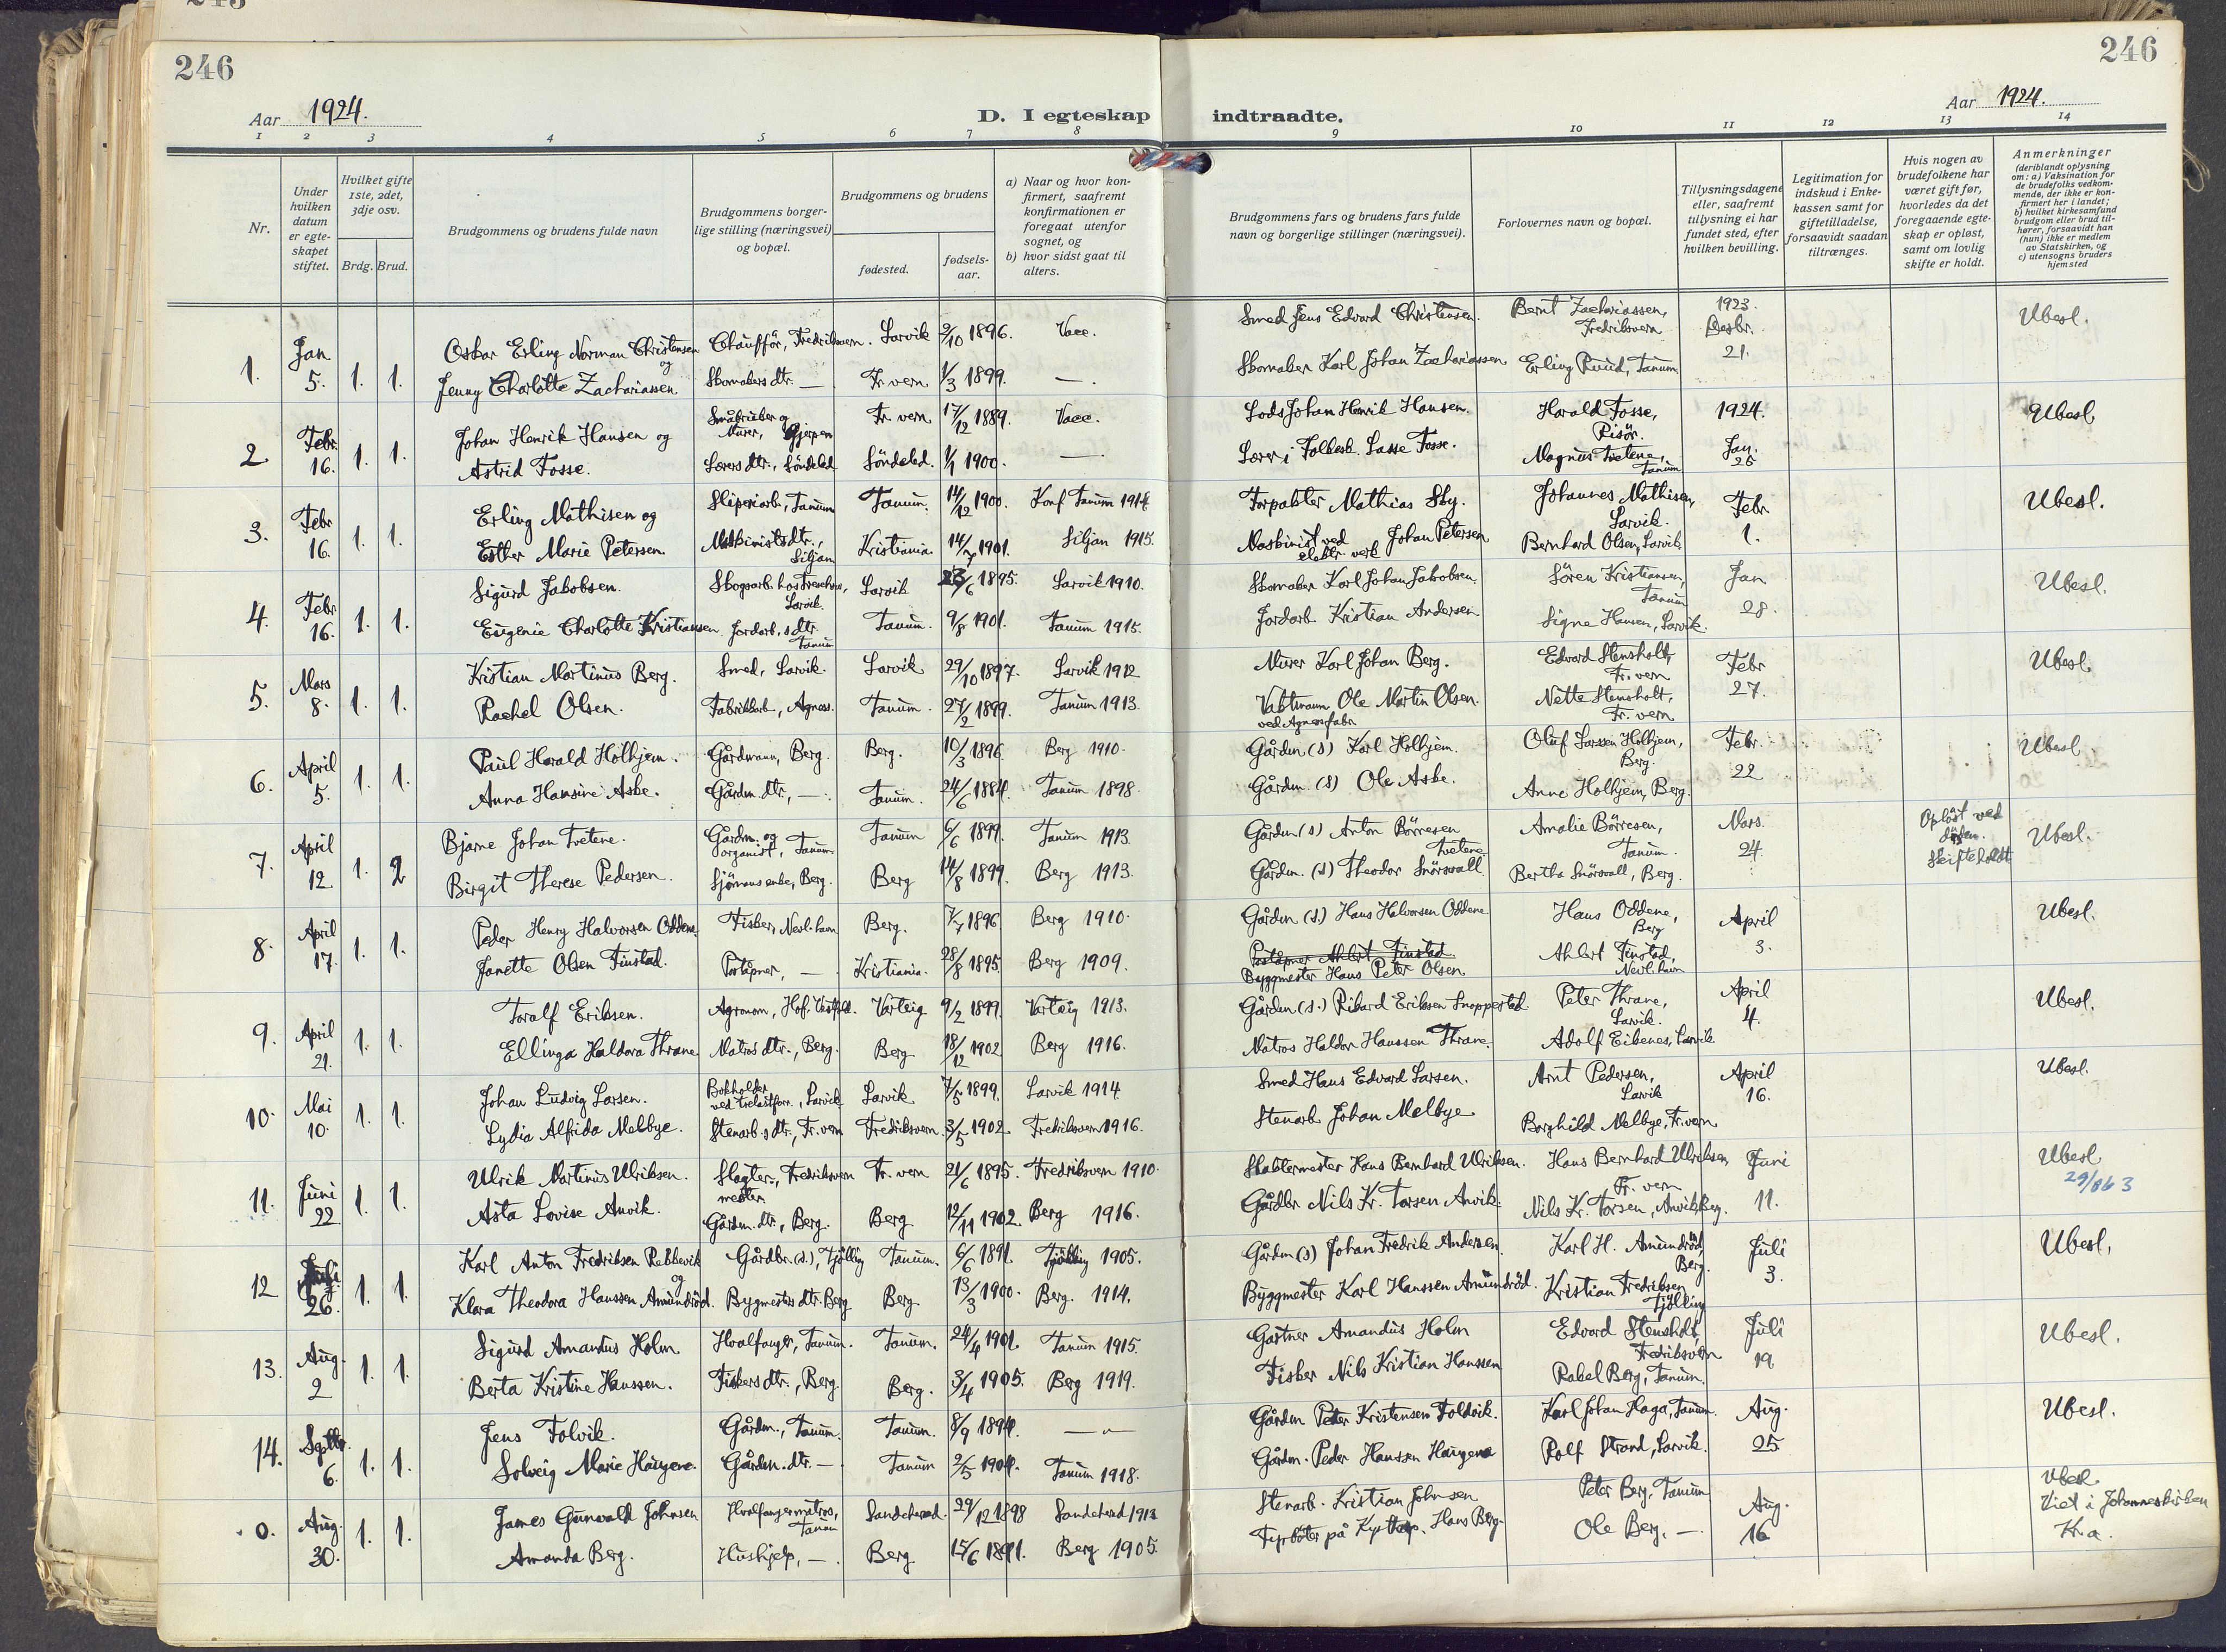 245
246
246
Aar 1924.
D. I egteskap indtraadte.
Aar 1924.
1 2 3 4 5 6 7 8 9 10 11 12 13 14
Nr.
Under hvilken datum er egteskapet stiftet.
Hvilket gifte 1ste, 2det, 3dje osv.
Brdg. Brud.
Brudgommens og brudens fulde navn
Brudgommens borgerlige stilling (næringsvei) og bopæl.
Brudgommens og brudens
fødested.
fødselsaar.
a) Naar og hvor konfirmert, saafremt konfirmationen er foregaat utenfor sognet, og
b) hvor sidst gaat til alters.
Brudgommens fars og brudens fars fulde navn og borgerlige stillinger (næringsvei).
Forlovernes navn og bopæl.
Tillysningsdagene eller, saafremt tillysning ei har fundet sted, efter hvilken bevilling.
Legitimation for indskud i Enkekassen samt for giftetilladelse, forsaavidt saadan tiltrænges.
Hvis nogen av brudefolkene har været gift før, hvorledes da det foregaaende egteskap er opløst, samt om lovlig skifte er holdt.
Anmerkninger
(deriblandt oplysning om: a) Vaksination for de brudefolks vedkommende, der ikke er konfirmert her i landet;
b) hvilket kirkesamfund brudgom eller brud tilhører, forsaavidt han (hun) ikke er medlem av Statskirken, og
c) utensogns bruders hjemsted
1. Jan. 5. 1. 1. Oskar Erling Norman Christensen og Chauffør, Fredriksvern. Larvik 2/10 1896. Vacc. Smed Jens Edvard Christensen. Bernt Zachariassen, Fredriksvern 1923. Desbr. 21. Ubesl.
Jenny Charlotte Zachariassen. Skomakers dtr. — Fr. vern 1/3 1899. — Skomaker Karl Johan Zachariassen Erling Ruud, Tanum.
2. Febr. 16. 1. 1. Johan Henrik Hansen og Småbruker og Murer, Gjerpen Fr. vern 17/12 1889. Vacc. Lods Johan Henrik Hansen. Harald Fosse, Risør. 1924. Jan. 25 Ubesl.
Astrid Fosse. Lærers dtr., Söndeled Söndeled. 1/1 1900. — Lærer i Folkesk. Lasse Fosse. Magnus Tvetene, Tanum
3. Febr 16. 1. 1. Erling Mathisen og Sliperiarb., Tanum Tanum. 14/12 1900. Konf Tanum 1914. Forpakter Mathias Sky. Johannes Mathisen, Larvik. Febr 1. Ubesl.
Esther Marie Petersen. Maskinists dtr., Siljan Kristiania 14/7 1901. Siljan 1915. Maskinist ved elektr. verk Johan Petersen Bernhard Olsen, Larvik
4. Febr 16. 1. 1. Sigurd Jakobsen. Skogsarb. hos Treschow, Larvik. Larvik 23/6 1895. Larvik 1910. Skomaker Karl Johan Jakobsen. Sören Kristiansen, Tanum Jan 28. Ubesl.
Eugenie Charlotte Kristiansen Jordarb.s dtr. Tanum Tanum. 9/8 1901. Tanum 1915. Jordarb. Kristian Andersen Signe Hansen, Larvik.
5. Mars 8. 1. 1. Kristian Martinus Berg. Smed, Larvik. Larvik 29/10 1897. Larvik 1912 Murer Karl Johan Berg. Edvard Stensholt, Fr. vern Febr 27. Ubesl.
Rachel Olsen. Fabrikkarb., Agnes. Tanum. 27/2 1899. Tanum 1913. Vaktmann Ole Martin Olsen. ved Agnes fabr. Nette Stensholt, Fr. vern
6. April 5. 1. 1. Paul Harald Holhjem. Gårdmann, Berg. Berg. 10/3 1896 Berg 1910. Gårdm (s) Karl Holhjem. Oluf Larssen Holhjem, Berg. Febr. 22 Ubesl
Anna Hansine Aske. Gårdm. dtr., — Tanum. 24/6 1884. Tanum 1898. Gårdm. (s) Ole Aske. Anne Holhjem, Berg.
7. April 12. 1. 2 Bjarne Johan Tvetene. Gårdm. og organist, Tanum. Tanum 6/6 1899. Tanum 1913. Gårdm (s) Anton Börresen Tvetene Amalie Börresen, Tanum. Mars 24. Opløst ved döden. Skifte holdt Ubesl.
Birgit Therese Pedersen. Sjömans enke, Berg. Berg 14/8 1899. Berg 1913. Gårdm. (s) Theodor Snörsvall. Bertha Snörsvall, Berg.
8. April 17. 1. 1. Peder Henry Halvorsen Oddene. Fisker, Nevl. havn Berg. 7/7 1896 Berg 1910. Gårdm (s.) Hans Halvorsen Oddene Hans Oddene, Berg April 3. Ubesl.
Janette Olsen Finstad. Poståpner, — Kristiania. 28/8 1895. Berg 1909. Poståpner Ahlert Finstad Byggmester Hans Peter Olsen Ahlert Finstad, Nevl. havn
9. April 21. 1. 1. Toralf Eriksen. Agronom, Hof, Vestfold. Varteig 9/2 1899. Varteig 1913. Gårdm (s.) Rikard Eriksen Snoppestad Peter Thrane, Larvik. April 4. Ubesl.
Ellinga Haldora Thrane Matros dtr., Berg. Berg 18/12 1902 Berg 1916. Matros Haldor Hanssen Thrane. Adolf Eikenes, Larvik
10. Mai 10. 1. 1. Johan Ludvig Larsen. Bokholder ved trelastforr., Larvik Larvik 7/5 1899. Larvik 1914 Smed Hans Edvard Larsen. Arnt Pedersen, Larvik April 16. Ubesl.
Lydia Alfrida Melbye. Stenarb.s dtr., Fr. vern Fredriksvern. 3/5 1902. Fredriksvern 1916. Stenarb. Johan Melbye Borghild Melbye, Fr. vern
11. Juni 22 1. 1. Ulrik Martinus Ulriksen. Slagter-, Fredriksvern mester Fr. vern 21/6 1895. Fredriksvern 1910. Slaktermester Hans Bernhard Ulriksen. Hans Bernhard Ulriksen, Fr. vern Juni 11. Ubesl 29/86 3
Asta Lovise Anvik. Gårdm. dtr., Berg. Berg 12/11 1902. Berg 1916. Gårdbr Nils Kr. Torsen Anvik. Nils Kr. Torsen, Anvik, Berg.
12 Juli 26. 1. 1. Karl Anton Fredriksen Rekkevik og Gårdbr. (s.), Tjölling Tanum. 6/6 1891. Tjölling 1905. Gårdm (s) Johan Fredrik Andersen. Karl H. Amundröd, Berg. Juli 3. Ubesl.
Klara Theodora Hanssen Amundröd. Bygmesters dtr. Berg Berg. 13/3 1900. Berg. 1914. Byggmester Karl Hanssen Amundröd. Kristian Fredriksen Tjölling
13. Aug. 2 1. 1. Sigurd Amandus Holm. Hvalfanger, Tanum. Tanum. 24/4 1901. Tanum 1915. Gartner Amandus Holm Edvard Stensholt, Fredriksvern Juli 19. Ubesl.
Berta Kristine Hanssen. Fiskers dtr., Berg. Berg. 3/4 1905. Berg 1919. Fisker Nils Kristian Hanssen Rakel Berg, Tanum.
14. Septbr. 6. 1. 1. Jens Folvik. Gårdm., Tanum. Tanum. 8/9 1894. — " — Gårdm Peter Kristensen Foldvik. Karl Johan Haga, Tanum. Aug. 25 Ubesl.
Solveig Marie Haugene. Gårdm. dtr. — Tanum 2/5 1904. Tanum 1918. Gårdm. Peder Hanssen Haugene Rolf Strand, Larvik.
0. Aug. 30. 1. 1. James Gunvald Johnsen Hvalfangermatros, Tanum Sandeherad. 29/12 1898 Sandeherad 1913 Stenarb. Kristian Johnsen Peter Berg, Tanum Aug. 16 Ubesl. Viet i Johanneskirken Kr.a.
Amanda Berg. Hushjelp, — Berg 15/6 1891. Berg 1905. Fyrböter på Hans Berg. Ole Berg. —